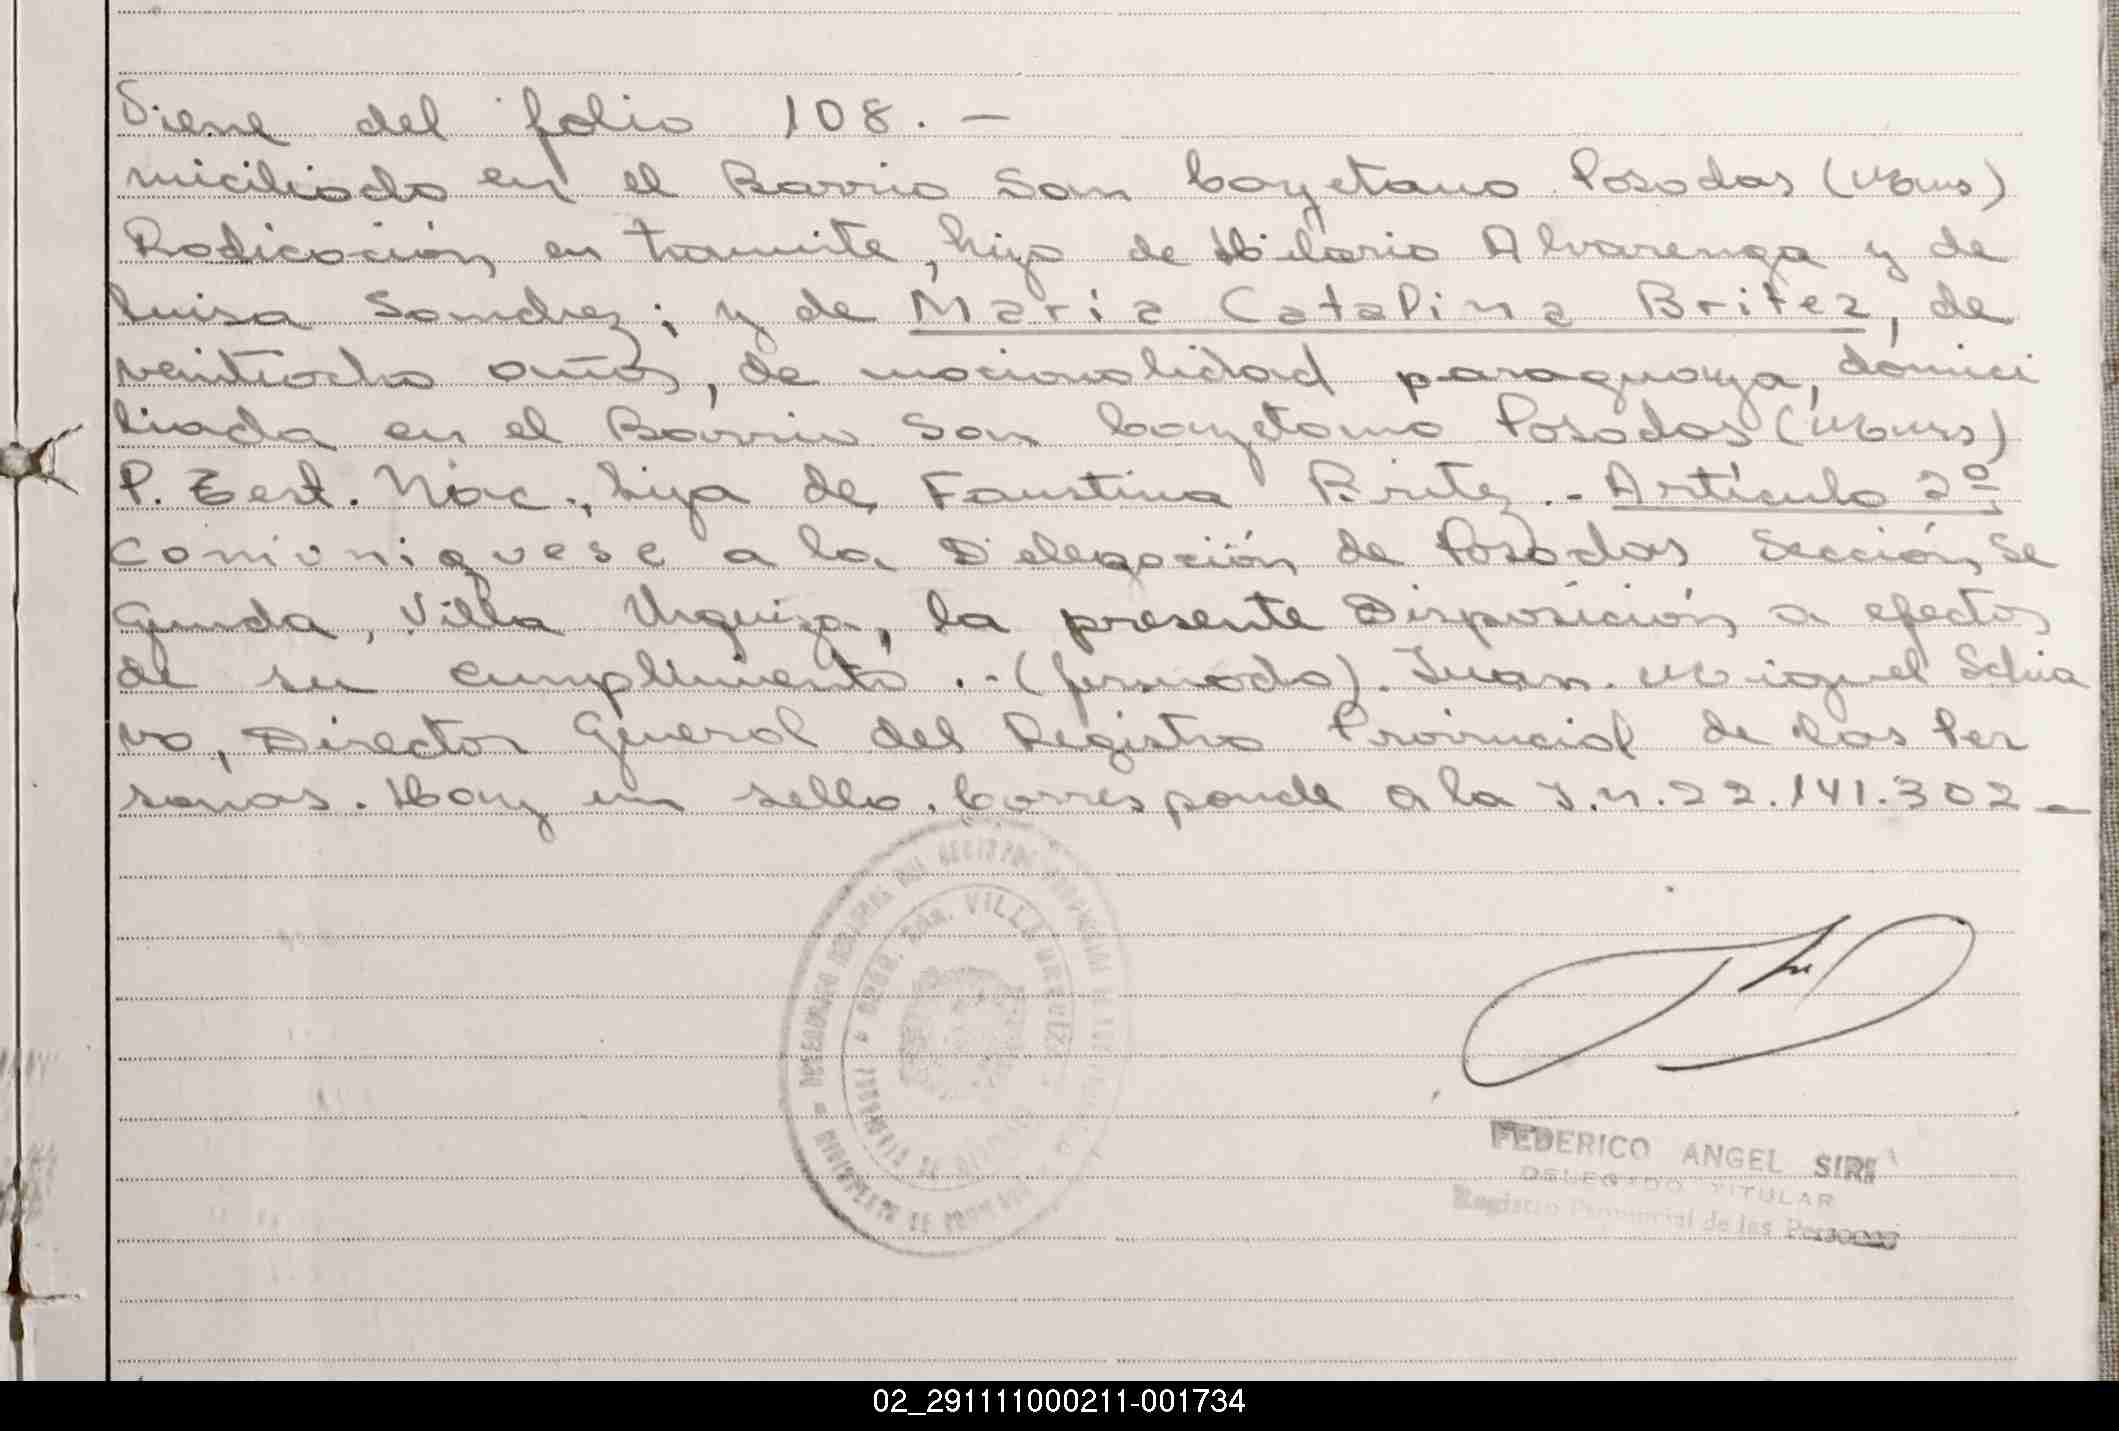 Viene del folio 108. —
miciliado en el Barrio San Cayetano Posadas (Mnes)
Radicación en tramite, hijo de Hilario Alvarenga y de
Luisa Sanchez; y de María Catalina Britez, de
veintiocho años, de nacionalidad paraguaya, domici
liada en el Barrio San Cayetano Posadas (Mnes)
P. Cert. Nac., hija de Faustina Britez.- Artículo 2º
Comuniquese a la Delegación de Posadas Sección Se
gunda, Villa Urquiza, la presente Disposición a efectos
de su cumplimiento.-(firmado). Juan Miguel Schia
vo, Director General del Registro Provincial de las Per
sonas. Hay un sello. Corresponde a la I.N. 22.141.302 —
VILLA URQUIZA
FEDERICO ANGEL SIRI
DELEGADO TITULAR
Registro Provincial de las Personas
02_291111000211-001734